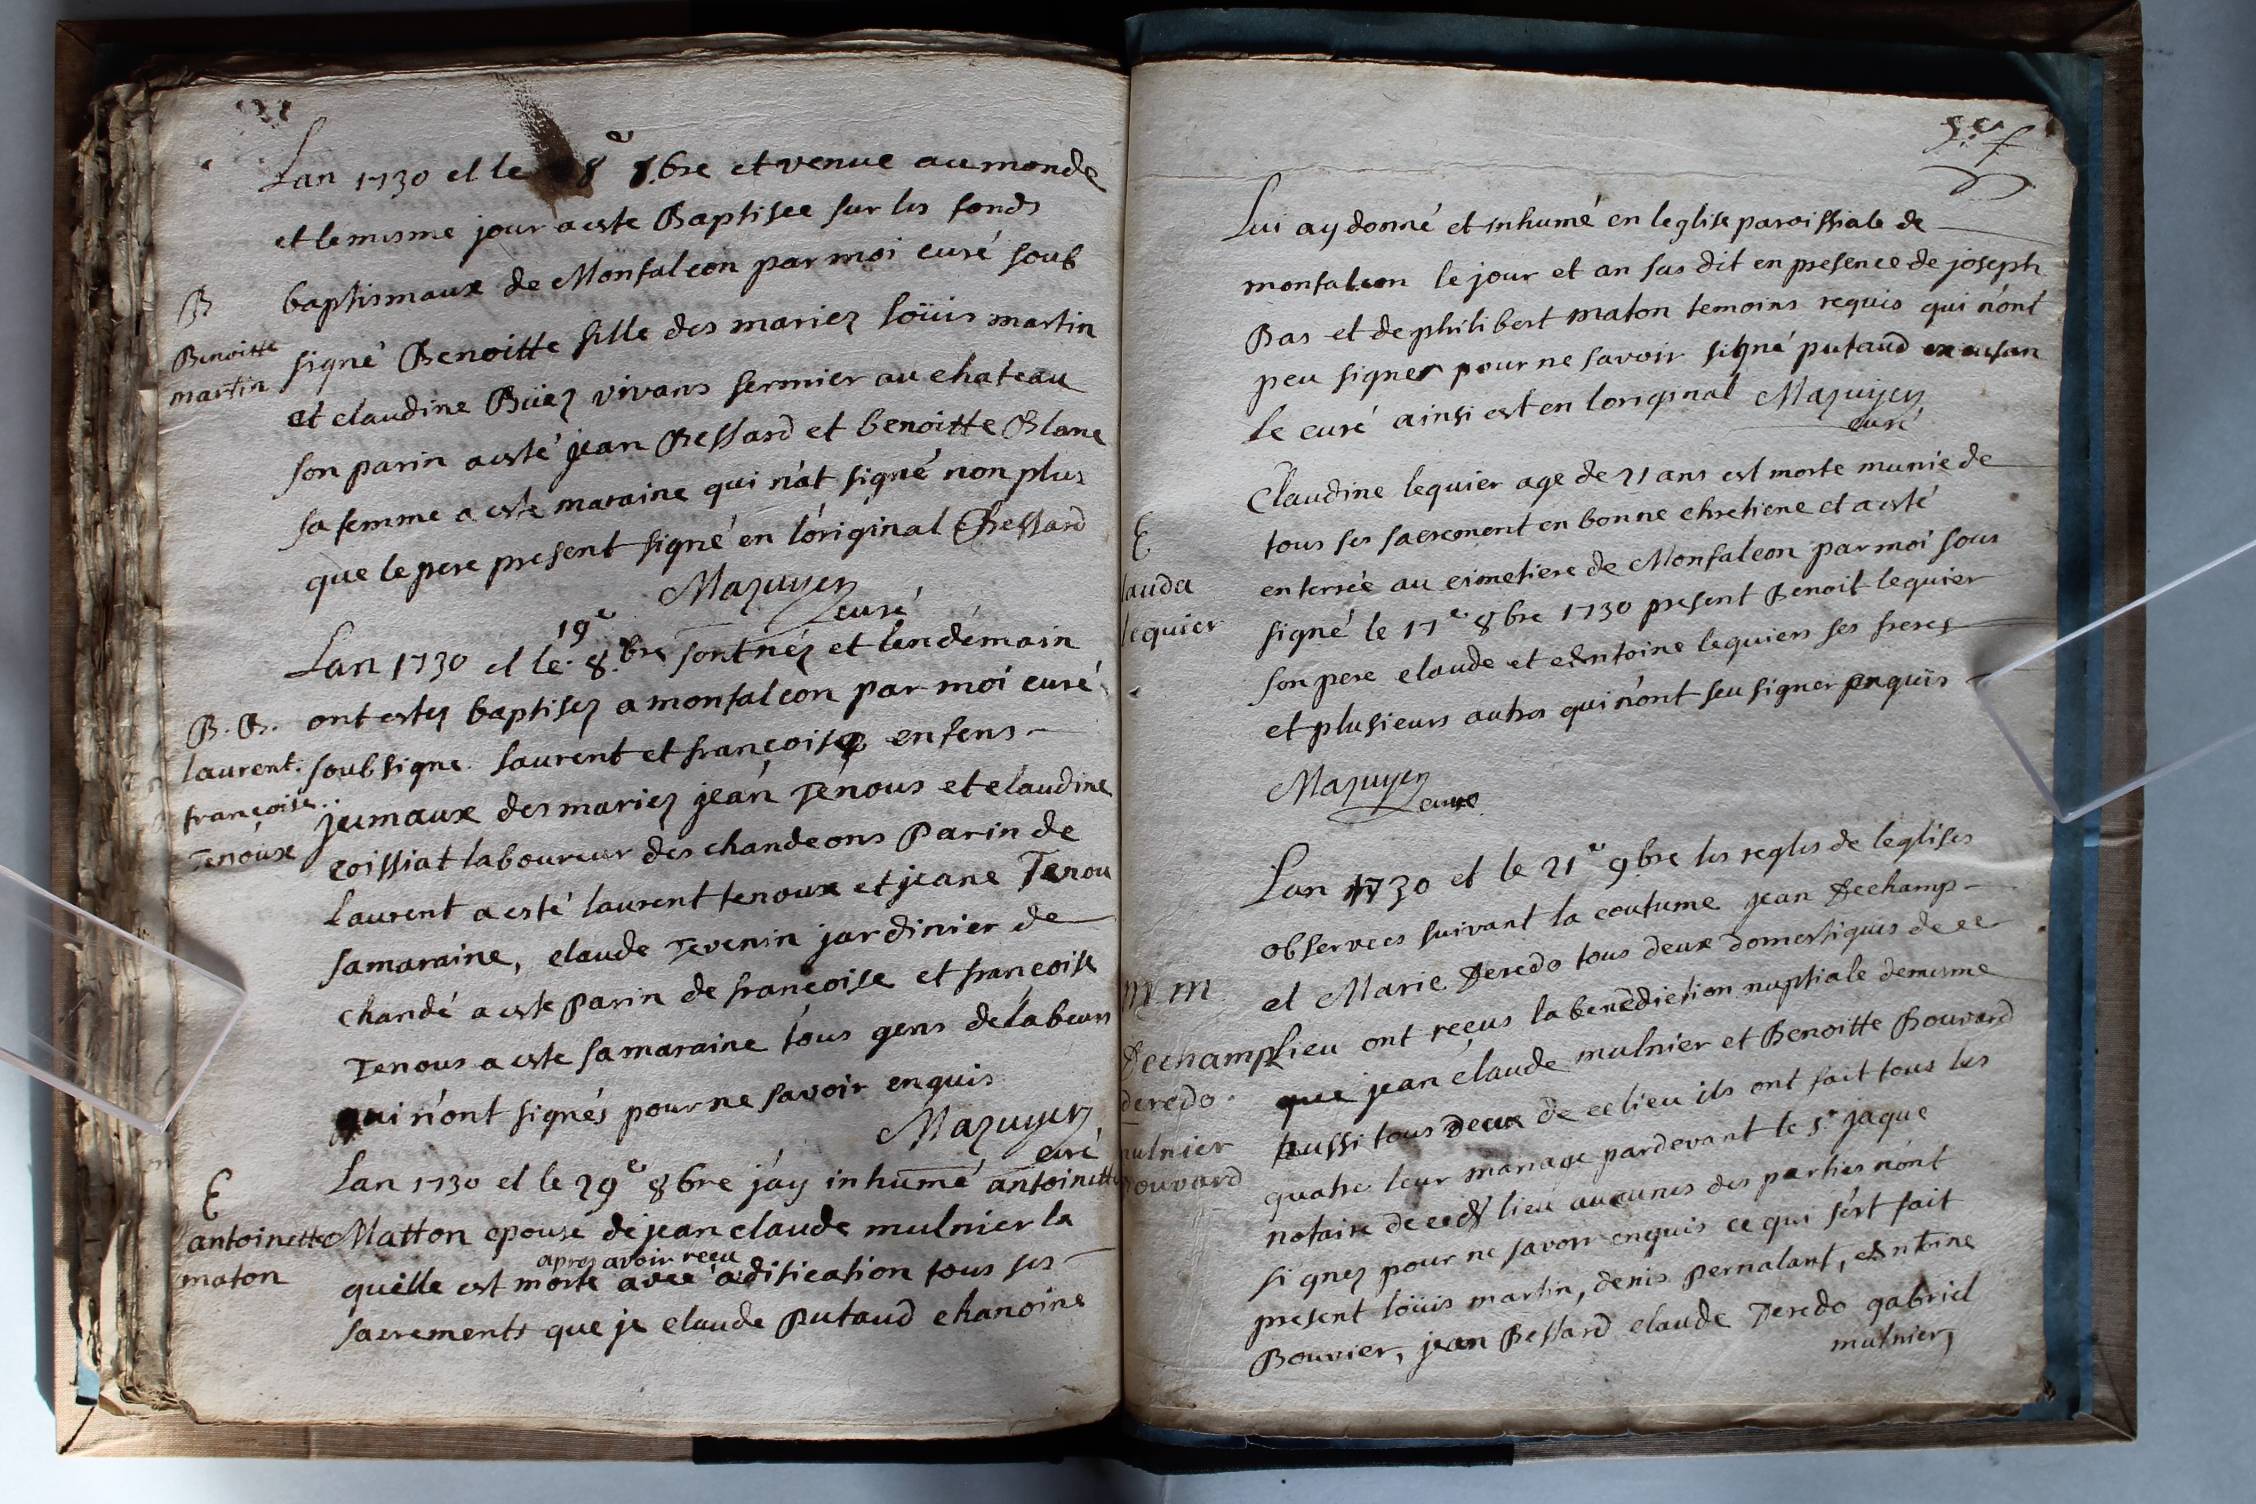 Lan 1730 et le 8e 8.bre et venue au monde
et le mesme jour a este Baptisee sur les fonds
baptismaux de Monfalcon par moi curé soub
B
Benoitte
martin
signé Benoitte fille des mariez loüis martin
et claudine Büez vivans fermier au chateau
son parin a esté jean Bessard et benoitte Blanc
sa femme a este maraine qui n'at signé non plus
que le pere present signé en l'original Bessard
Mazuyer
curé
Lan 1730 et le 19e 8.bre sont néz et lendémain
B. B.
laurent.
françoise..
Tenoux
ont estez baptisez a monfalcon par moi curé
soubsigne laurent et françoise enfens
jumaux des mariez jean Tenous et claudine
coissiat laboureur des chandeons Parin de
laurent a esté laurent tenoux et jeane Tenou
sa maraine, claude Tevenin jardinier de
chandé a este Parin de françoise et françoise
Tenous a este sa maraine tous gens de labeurs
qui n'ont signés pour ne savoir enquis
Mazuyer
curé
E
antoinette
maton
Lan 1730 et le 29e 8bre j'ay inhumé antoinette
Matton epouse de jean claude mulnier la
quelle est morte apres avoir reçu avec adification tous ses
sacrements que je claude Putaud chanoine
Lui ay donné et inhumé en leglise paroissiale de
monfalcon le jour et an sus dit en presence de joseph
Bas et de philibert maton temoins requis qui n'ont
peu signer pour ne savoir signé putaud
le curé ainsi est en loriginal Mazuyer
curé
E
lauda
lequier
Claudine lequier age de 21 ans est morte munie de
tous ses sacrement en bonne chretiene et a esté
enterrée au cimetiere de Monfalcon par moi sous
signé le 17e 8bre 1730 present Benoit lequier
son pere claude et Antoine lequiers ses freres
et plusieurs autres qui n'ont seu signer enquis
Mazuyer
curé
Lan 1730 et le 21e 9.bre les regles de leglises
observees suivant la coutume jean Dechamp
m m
Dechamp
deredo.
mulnier
bouvard
et Marie Deredo tous deux domestiques de ce
lieu ont reçus la benediction nuptiale de mesme
que jean claude mulnier et Benoitte Bouvard
aussi tous deux de ce lieu ils ont fait tous les
quatre leur mariage pardevant le Sr jaque
notaire de ced lieu aucunes des parties n'ont
signez pour ne savoir enquis ce qui s'est fait
present loüis martin, denis Pernalant, Antoine
Bouvier, jean Bessard claude Deredo gabriel
mulnier,